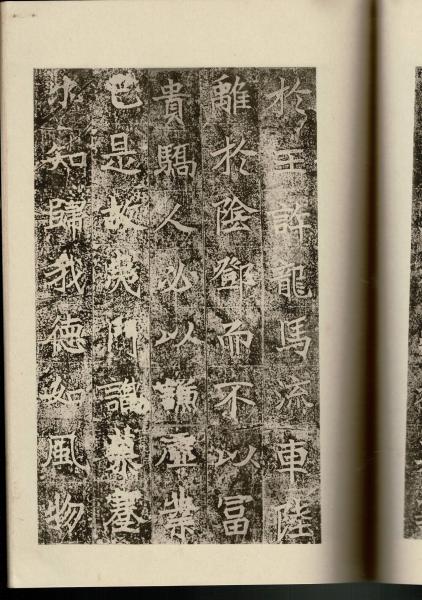 於王許龍馬流車陸
離於陰鄧而不以冨
貴驕人必以謙虛業
己是故夷門識慕塞
外知歸我德如風物